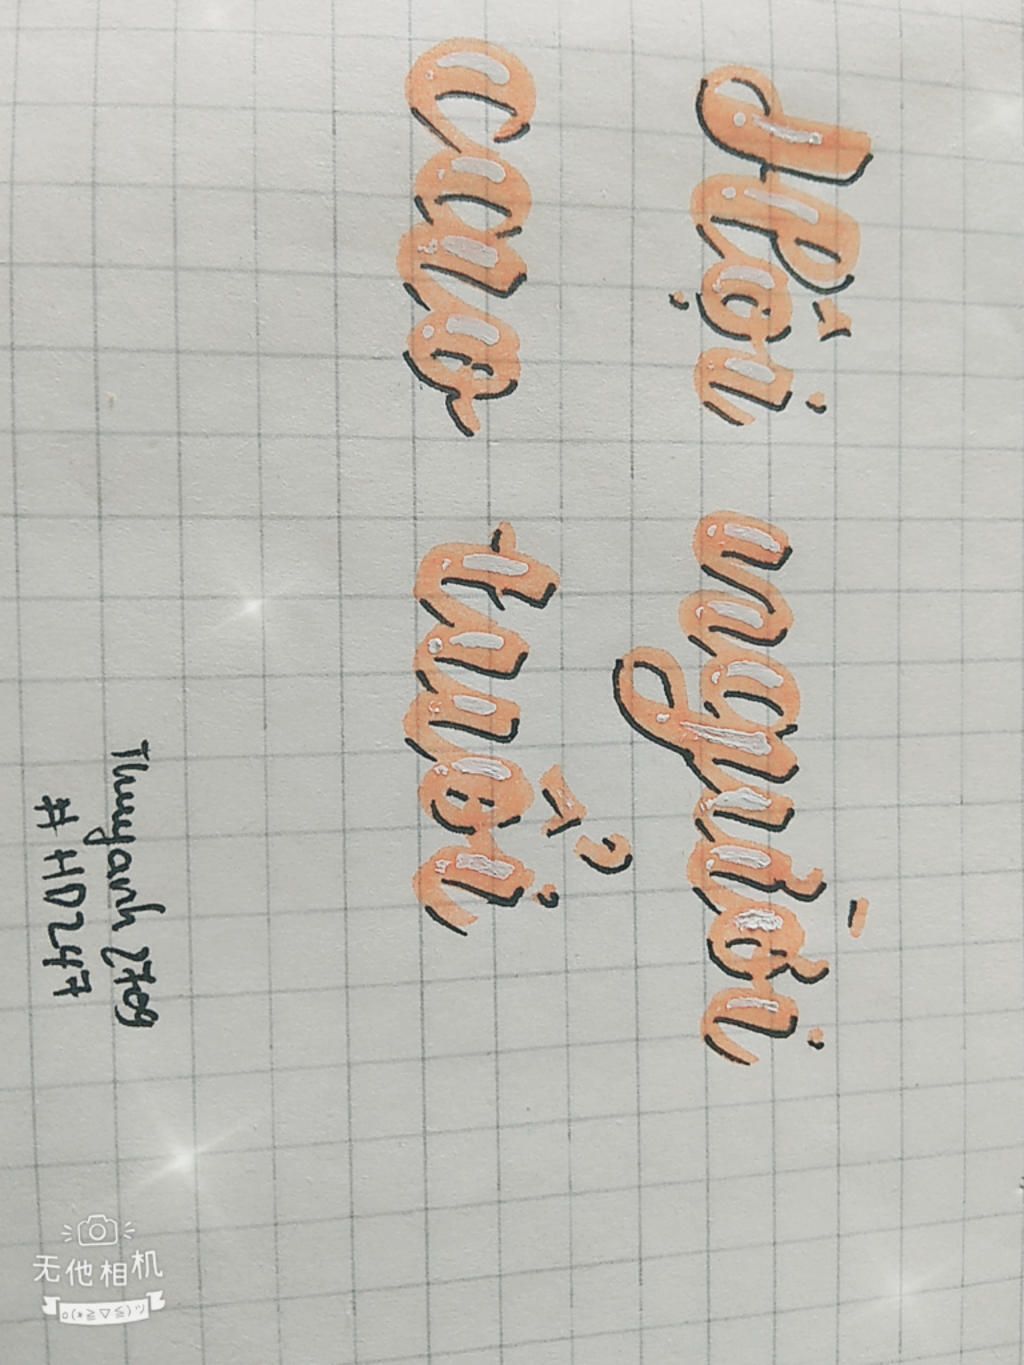 Hội người
cao tuổi
Thuyanh 2709
#HD247
无他相机